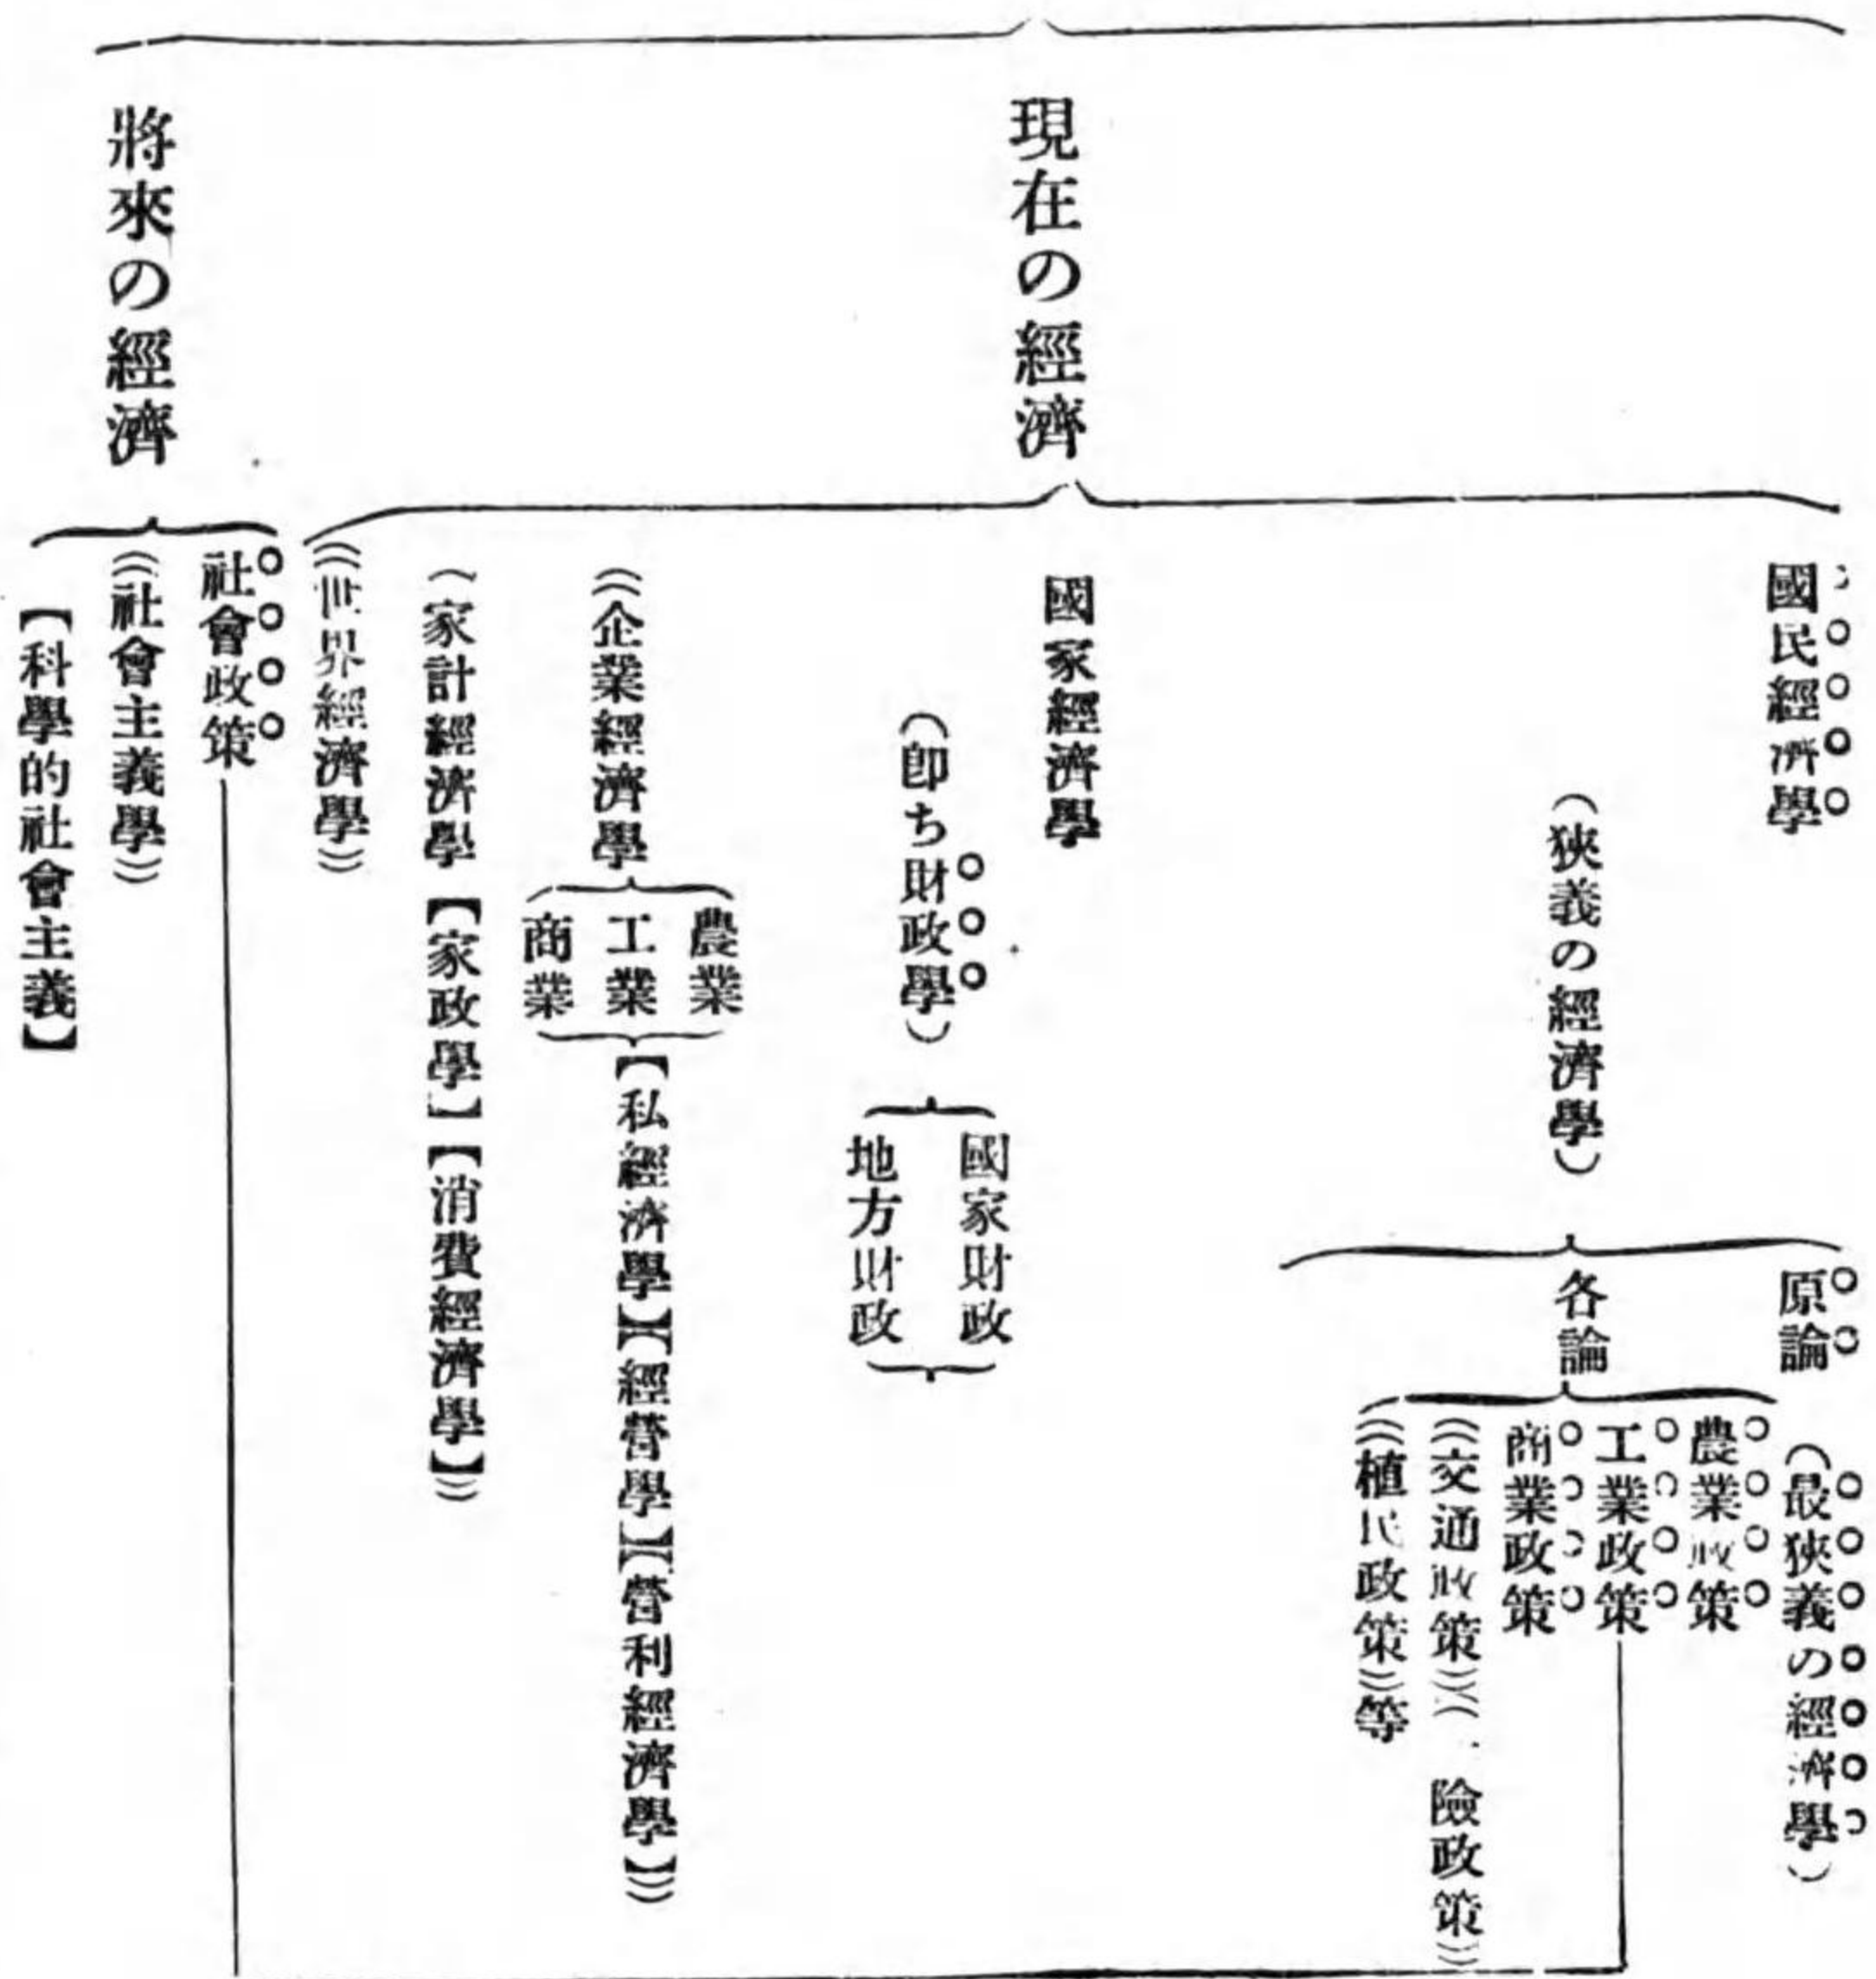 現在の經濟
國民經濟學
(狹義の經濟學)
原論
(最狹義の經濟學)
各論
農業政策
工業政策
商業政策
((交通政策))((險政策))
((植民政策))等
國家經濟學
(卽ち財政學)
國家財政
地方財政
((企業經濟學
農業
工業
商業
【私經濟學】【經營學】【營利經濟學】))
(家計經濟學【家政學】【消費經濟學】))
((世界經濟學))
將來の經濟
社會政策
((社會主義學))
【科學的社會主義】